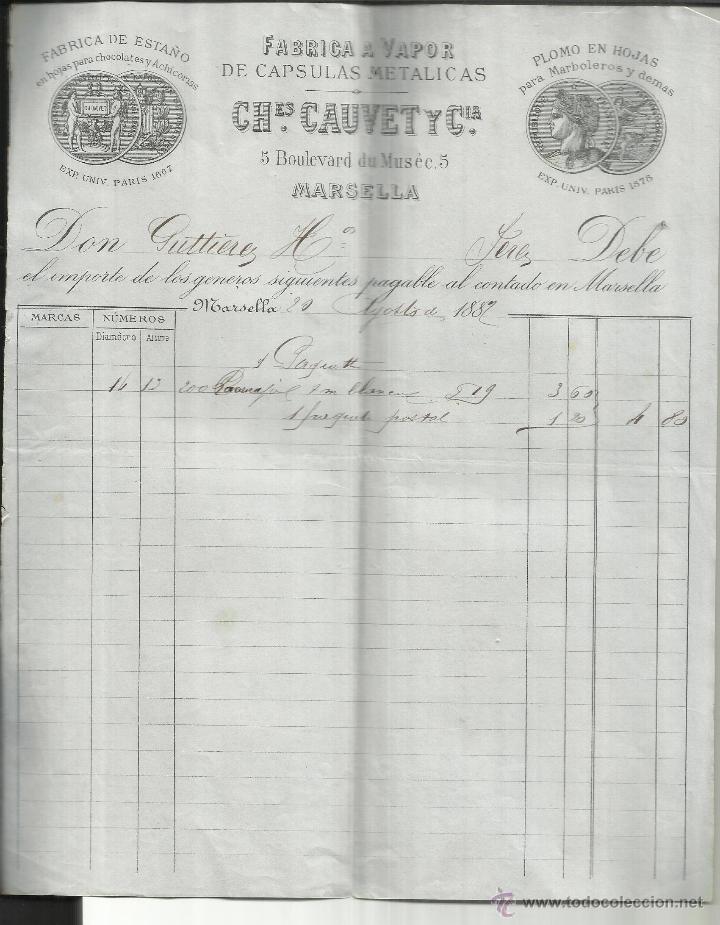 FABRICA DE ESTAÑO
en hojas para chocolates y Achicorias
EXP. UNIV. PARIS 1867
FABRICA A VAPOR
DE CAPSULAS METALICAS
CHES. CAUVET Y CIA.
5 Boulevard du Musèe, 5
MARSELLA
PLOMO EN HOJAS
para Marboleros y demas
EXP. UNIV. PARIS 1878
Don Guttierez Hos Jerez Debe
el importe de los generos siguientes pagable al contado en Marsella
Marsella 29 Agosto de 1882
MARCAS NÚMEROS
Diamétro
1 Paquete
16 12 200 blanc 19 3 60
1 paquete postal 1 20 4 80
www.todocoleccion.net